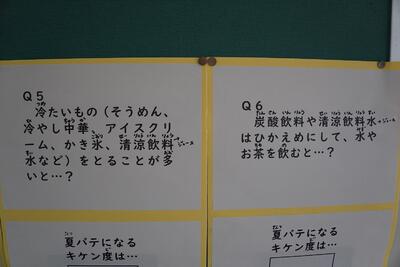 Q5
冷たいもの（そうめん、
冷やし中華、アイスクリ
ーム、かき氷、清涼飲料
水など）をとることが多
いと…？
夏バテになる
キケン度は…
Q6
炭酸飲料や清涼飲料水
はひかえめにして、水や
お茶を飲むと…？
夏バテになる
キケン度は…